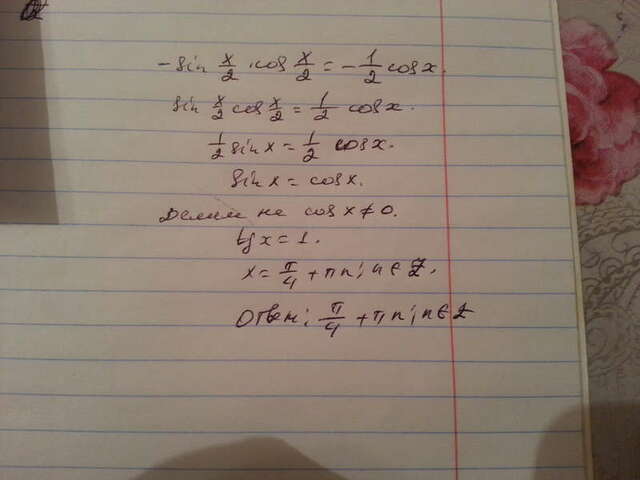 -sin x/2 · cos x/2 = -1/2 cos x.
sin x/2 cos x/2 = 1/2 cos x.
1/2 sin x = 1/2 cos x.
sin x = cos x.
Делим на cos x ≠ 0.
tg x = 1.
x = π/4 + πn; n ∈ Z.
Ответ: π/4 + πn; n ∈ Z